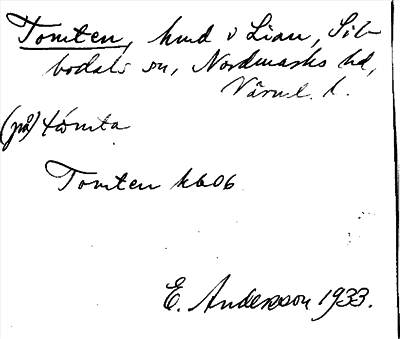 Tomten, hmd u Lian, Sil-
bodals sn, Nordmarks hd,
Värml. l.
(på) tómta
Tomten kb06
E. Andersson 1933.